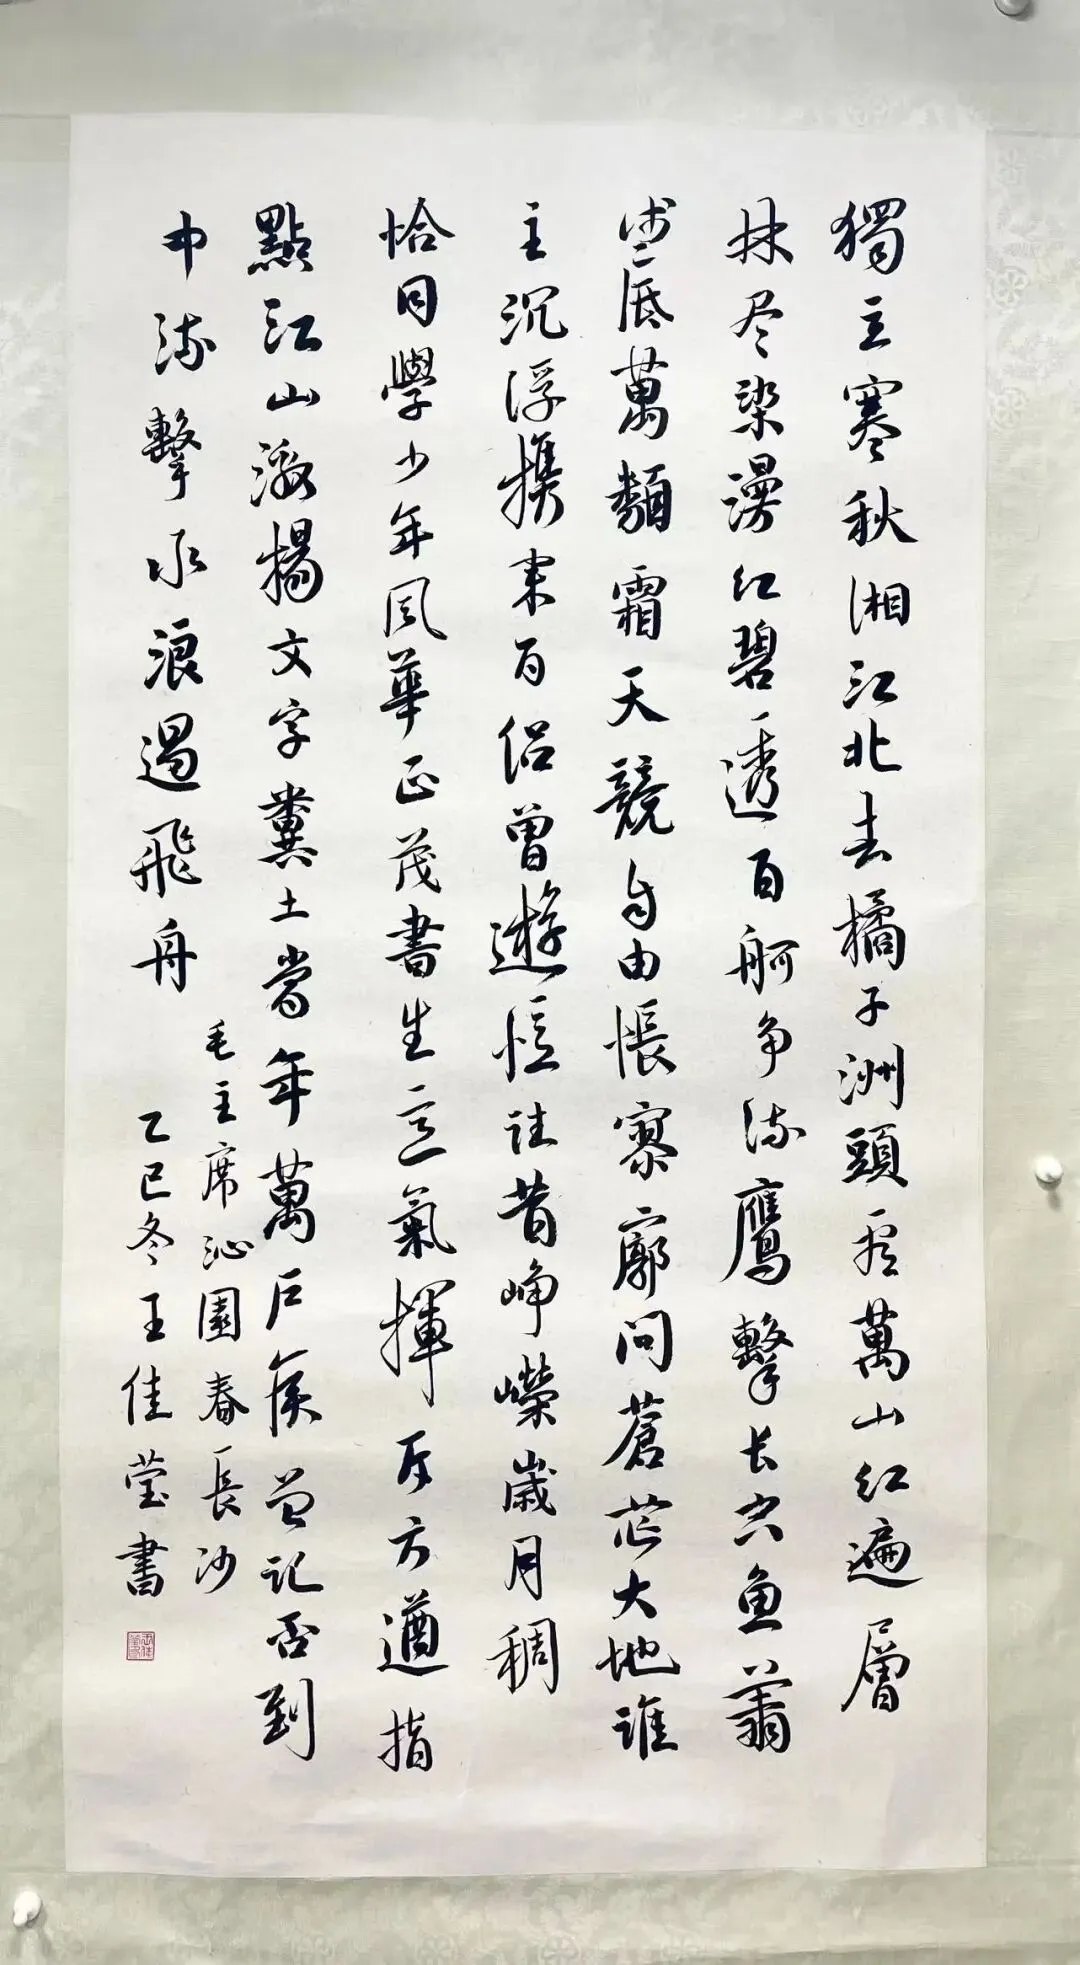 獨立寒秋湘江北去橘子洲頭看萬山红遍層
林尽染漫红碧透百舸争流鷹擊长空鱼
底萬類霜天競自由悵寥廓問蒼茫大地誰
主沉浮携来百侣曾遊憶往昔崢嶸歲月稠
恰同學少年風華正茂書生意氣揮斥方遒指
點江山激揚文字糞土當年萬户侯曾记否到
中流擊水浪遏飛舟
毛主席沁園春長沙
乙巳冬王佳莹書